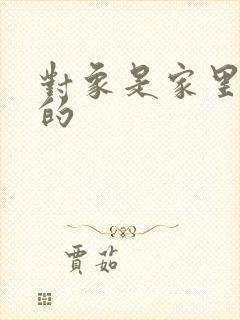 對象是家里
的
賈茹